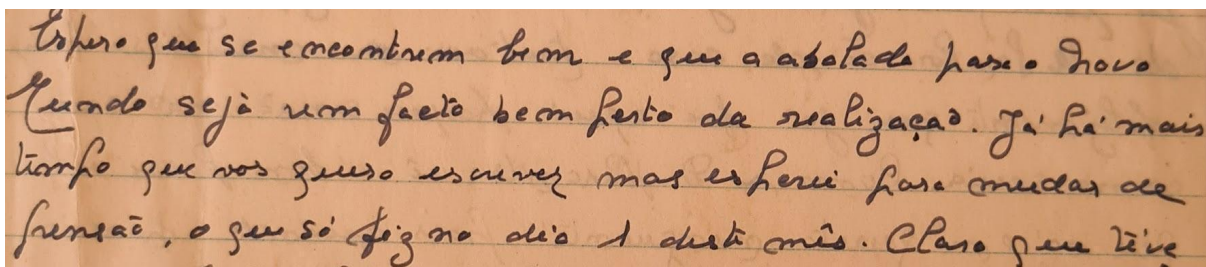 Espero que se encontrem bem e que a abalada para o Novo
Mundo sejà um facto bem perto da realização. Já há mais
tempo que vos quero escrever mas esperei para mudar de
pensão, o que só fiz no dia 1 deste mês. Claro que tive